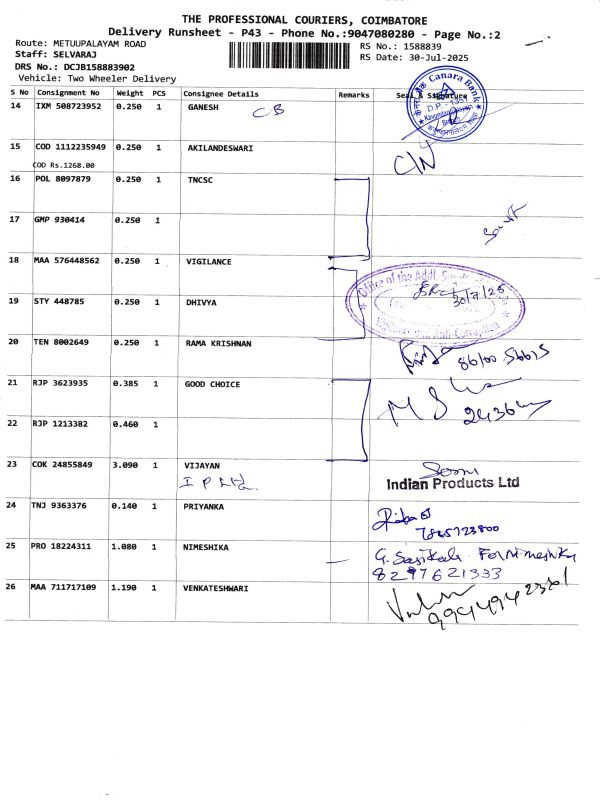 THE PROFESSIONAL COURIERS, COIMBATORE
Delivery Runsheet - P43 - Phone No.:9047080280 - Page No.:2
Route: METUUPALAYAM ROAD
Staff: SELVARAJ
DRS No.: DCJB158883902
Vehicle: Two Wheeler Delivery
RS No.: 1588839
RS Date: 30-Jul-2025
S No Consignment No Weight PCS Consignee Details Remarks Seal & Signature
Canara Bank
D.P.
14 IXM 508723952 0.250 1 GANESH CB
15 COD 1112235949 0.250 1 AKILANDESWARI
COD Rs.1268.00
C/N
16 POL 8097879 0.250 1 TNCSC
17 GMP 930414 0.250 1
18 MAA 576448562 0.250 1 VIGILANCE
Office of the Addl.
30/7/25
Vigilance and Anti Corruption
19 STY 448785 0.250 1 DHIVYA
20 TEN 8002649 0.250 1 RAMA KRISHNAN
21 RJP 3623935 0.385 1 GOOD CHOICE
22 RJP 1213382 0.460 1
23 COK 24855849 3.090 1 VIJAYAN
I P Ltd.
Indian Products Ltd
24 TNJ 9363376 0.140 1 PRIYANKA
25 PRO 18224311 1.080 1 NIMESHIKA
G. Sasikala For Nimeshika
8297621333
26 MAA 711717109 1.190 1 VENKATESHWARI